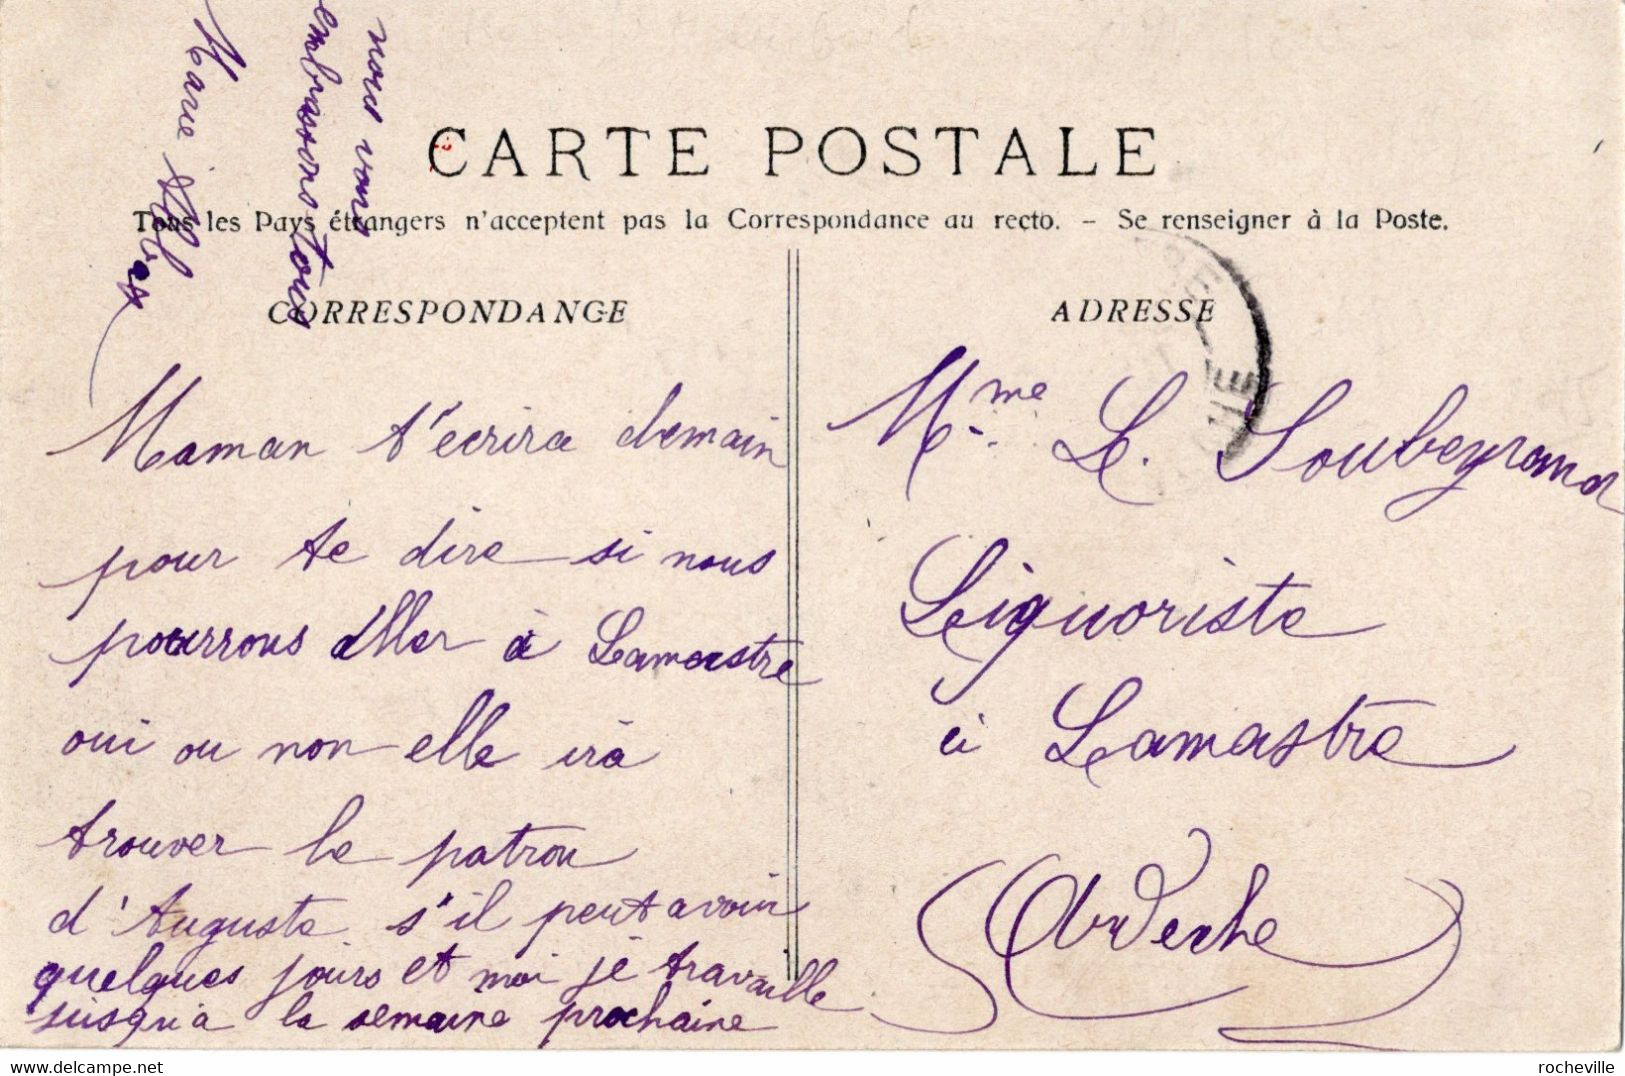 CARTE POSTALE
Tous les Pays étrangers n'acceptent pas la Correspondance au recto. - Se renseigner à la Poste.
CORRESPONDANCE
Maman t'ecrira demain
pour te dire si nous
pourrons aller à Lamastre
oui ou non elle irà
trouver le patron
d'Auguste s'il peut avoir
quelques jours et moi je travaille
jusqu'a la semaine prochaine
nous vous
embrassons tous
Marie
ADRESSE
Mme L. Soubeyrand
Leiquoriste
à Lamastre
Ardeche
rocheville